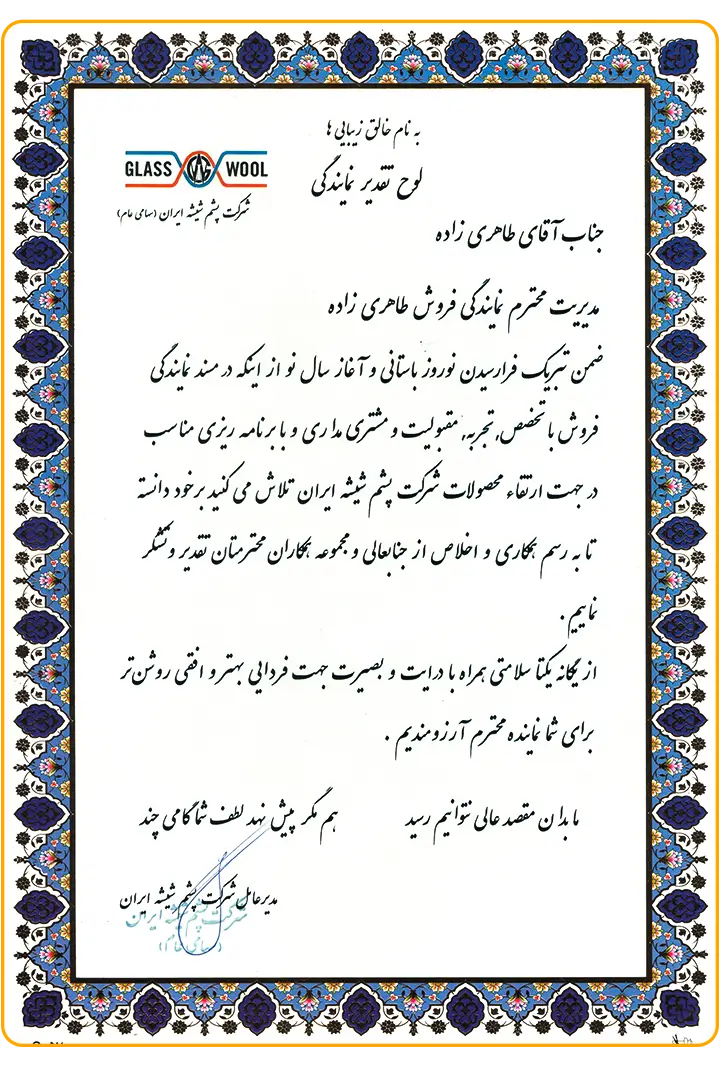 به نام خالق زیبایی ها
لوح تقدیر نمایندگی
GLASS WOOL
شرکت پشم شیشه ایران (سامی عام)
جناب آقای طاهری زاده
مدیریت محترم نمایندگی فروش طاهری زاده
ضمن تبریک فرارسیدن نوروز باستانی و آغاز سال نو از اینکه در مسند نمایندگی
فروش با تخصص، تجربه، مقبولیت و مشتری مداری و با برنامه ریزی مناسب
در جهت ارتقاء محصولات شرکت پشم شیشه ایران تلاش می کنید برخود دانسته
تا به رسم همکاری و اخلاص از جنابعالی و مجموعه همکاران محترمتان تقدیر و تشکر
نماییم.
از یگانه یکتا سلامتی همراه با درایت و بصیرت جهت فردایی بهتر و افقی روشن تر
برای شما نماینده محترم آرزومندیم.
ما بدان مقصد عالی نتوانیم رسید هم مگر پیش نهد لطف شما گامی چند
مدیرعامل شرکت پشم شیشه ایران
شرکت پشم شیشه ایران
(سهامی عام)